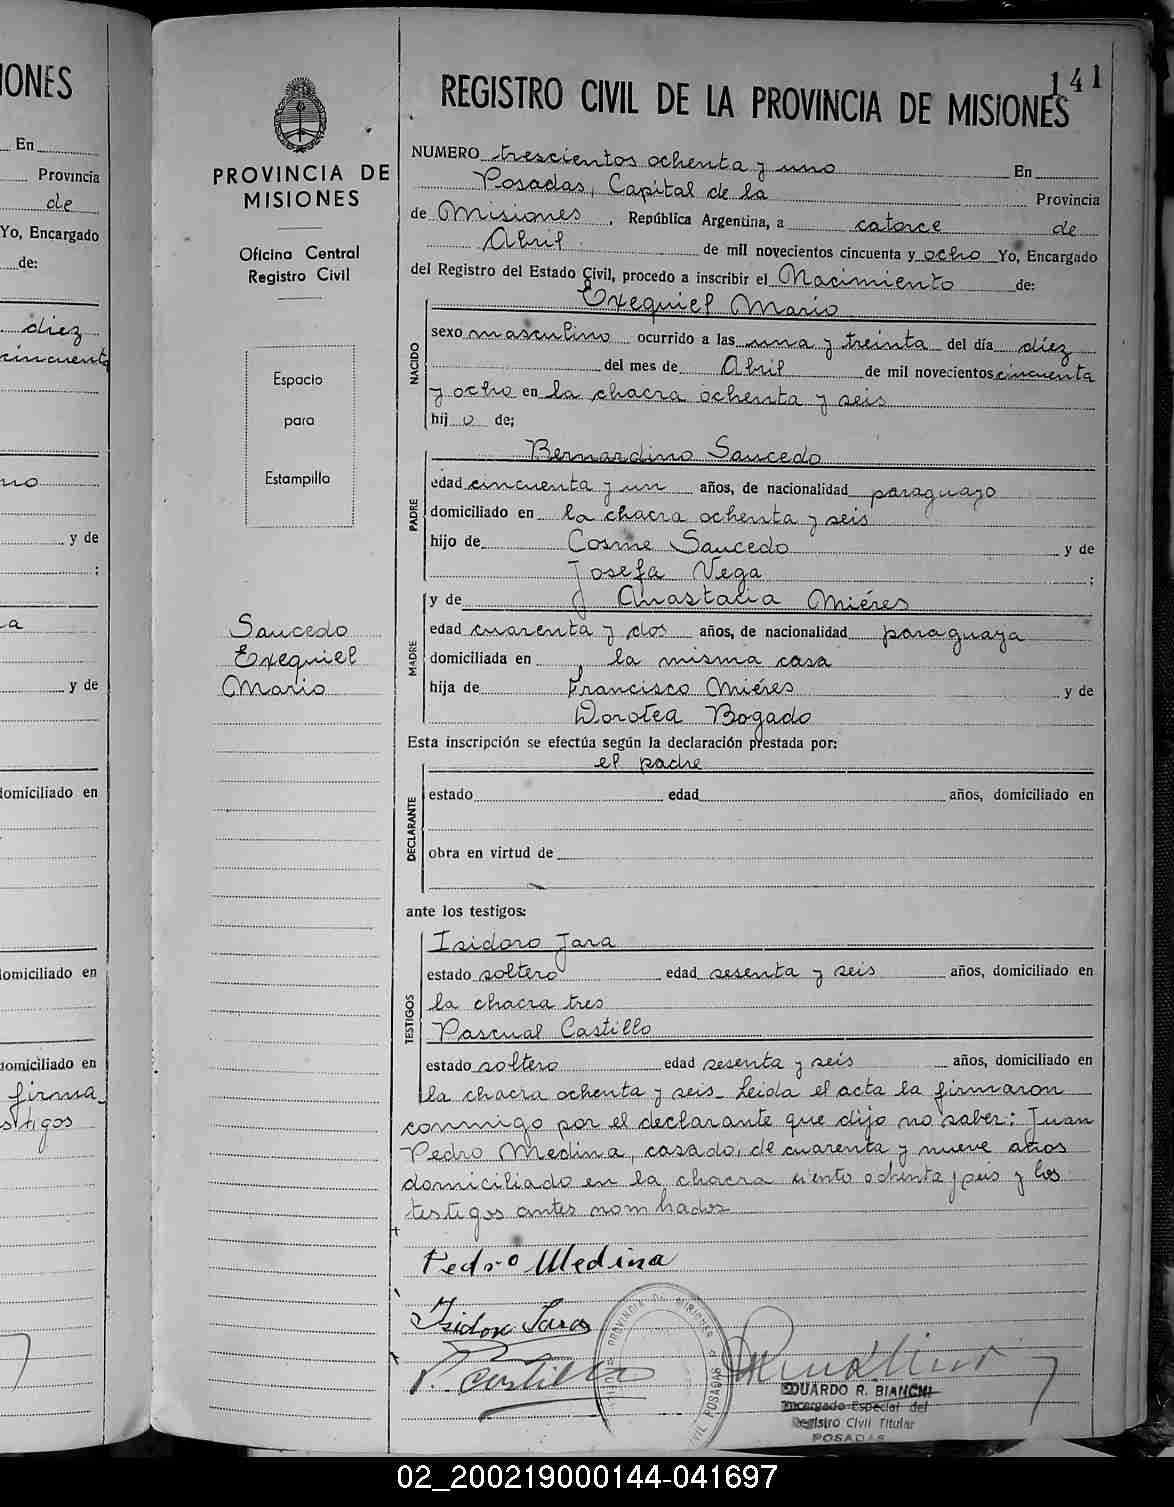 IONES
En
Provincia
de
Yo, Encargado
de:
diez
cincuenta
y de
a
y de
domiciliado en
domiciliado en
domiciliado en
firma
stigos
PROVINCIA DE
MISIONES
Oficina Central
Registro Civil
Espacio
para
Estampilla
Saucedo
Exequiel
Mario
141
REGISTRO CIVIL DE LA PROVINCIA DE MISIONES
NUMERO trescientos ochenta y uno En
Posadas, Capital de la Provincia
de Misiones, República Argentina, a catorce de
Abril de mil novecientos cincuenta y ocho Yo, Encargado
del Registro del Estado Civil, procedo a inscribir el Nacimiento de:
Exequiel Mario
NACIDO
sexo masculino ocurrido a las una y treinta del día diez
del mes de Abril de mil novecientos cincuenta
y ocho en la chacra ochenta y seis
hij o de;
Bernardino Saucedo
PADRE
edad cincuenta y un años, de nacionalidad paraguayo
domiciliado en la chacra ochenta y seis
hijo de Cosme Saucedo y de
Josefa Vega ;
y de Anastacia Miéres
MADRE
edad cuarenta y dos años, de nacionalidad paraguaya
domiciliada en la misma casa
hija de Francisco Miéres y de
Dorotea Bogado
Esta inscripción se efectúa según la declaración prestada por:
el padre
DECLARANTE
estado edad años, domiciliado en
obra en virtud de
ante los testigos:
TESTIGOS
Isidoro Jara
estado soltero edad sesenta y seis años, domiciliado en
la chacra tres
Pascual Castillo
estado soltero edad sesenta y seis años, domiciliado en
la chacra ochenta y seis_ Leida el acta la firmaron
conmigo por el declarante que dijo no saber: Juan
Pedro Medina, casado, de cuarenta y nueve años
domiciliado en la chacra ciento ochenta y seis y los
testigos antes nombrados
Pedro Medina
Isidoro Jara
P. Castillo
PROVINCIA DE MISIONES
POSADAS
EDUARDO R. BIANCHI
Encargado Especial del
Registro Civil Titular
POSADAS
02_200219000144-041697